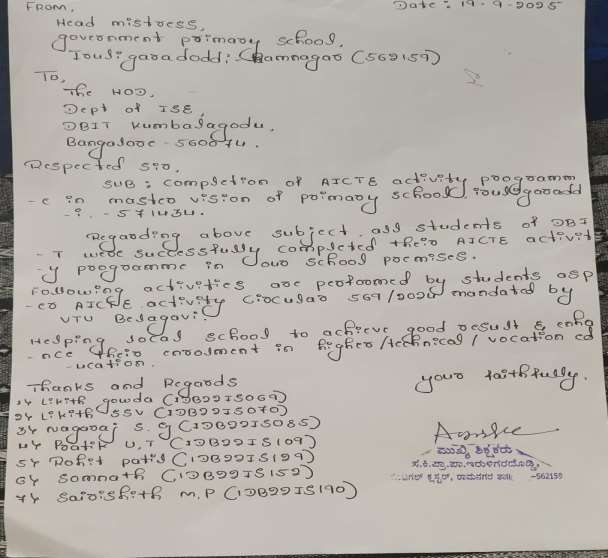 FROM, Date: 19-9-2025
Head mistress,
government primary school,
Iruligaradoddi, Ramnagar (562159)
To,
The HOD,
Dept of ISE,
DBIT Kumbalagodu,
Bangalore - 560074.
Respected Sir,
SUB: Completion of AICTE activity programm
-e in master vision of primary school, irulgaradd
-i. - 571434.
Regarding above subject, all students of DBI
-T were successfully completed their AICTE activit
-y programme in your school premises.
Following activities are performed by students asp
-er AICTE activity Circular 569/2025 mandated by
VTU Belagavi.
Helping local school to achieve good result & enha
-nce their enrolment in higher/technical/vocation ed
-ucation.
Thanks and Regards
your faithfully,
1) Likith gowda (1DB22IS069)
2) Likith SSV (1DB22IS070)
3) Nagaraj S. G (1DB22IS085)
4) Pratik U.T (1DB22IS109)
5) Rohit patil (1DB22IS129)
6) Somnath (1DB22IS152)
7) Sairishith M.P (1DB22IS190)
ಮುಖ್ಯ ಶಿಕ್ಷಕರು
ಸ.ಕಿ.ಪ್ರಾ.ಪಾ.ಇರುಳಿಗರದೊಡ್ಡಿ,
ಕ್ಲಸ್ಟರ್, ರಾಮನಗರ -562159